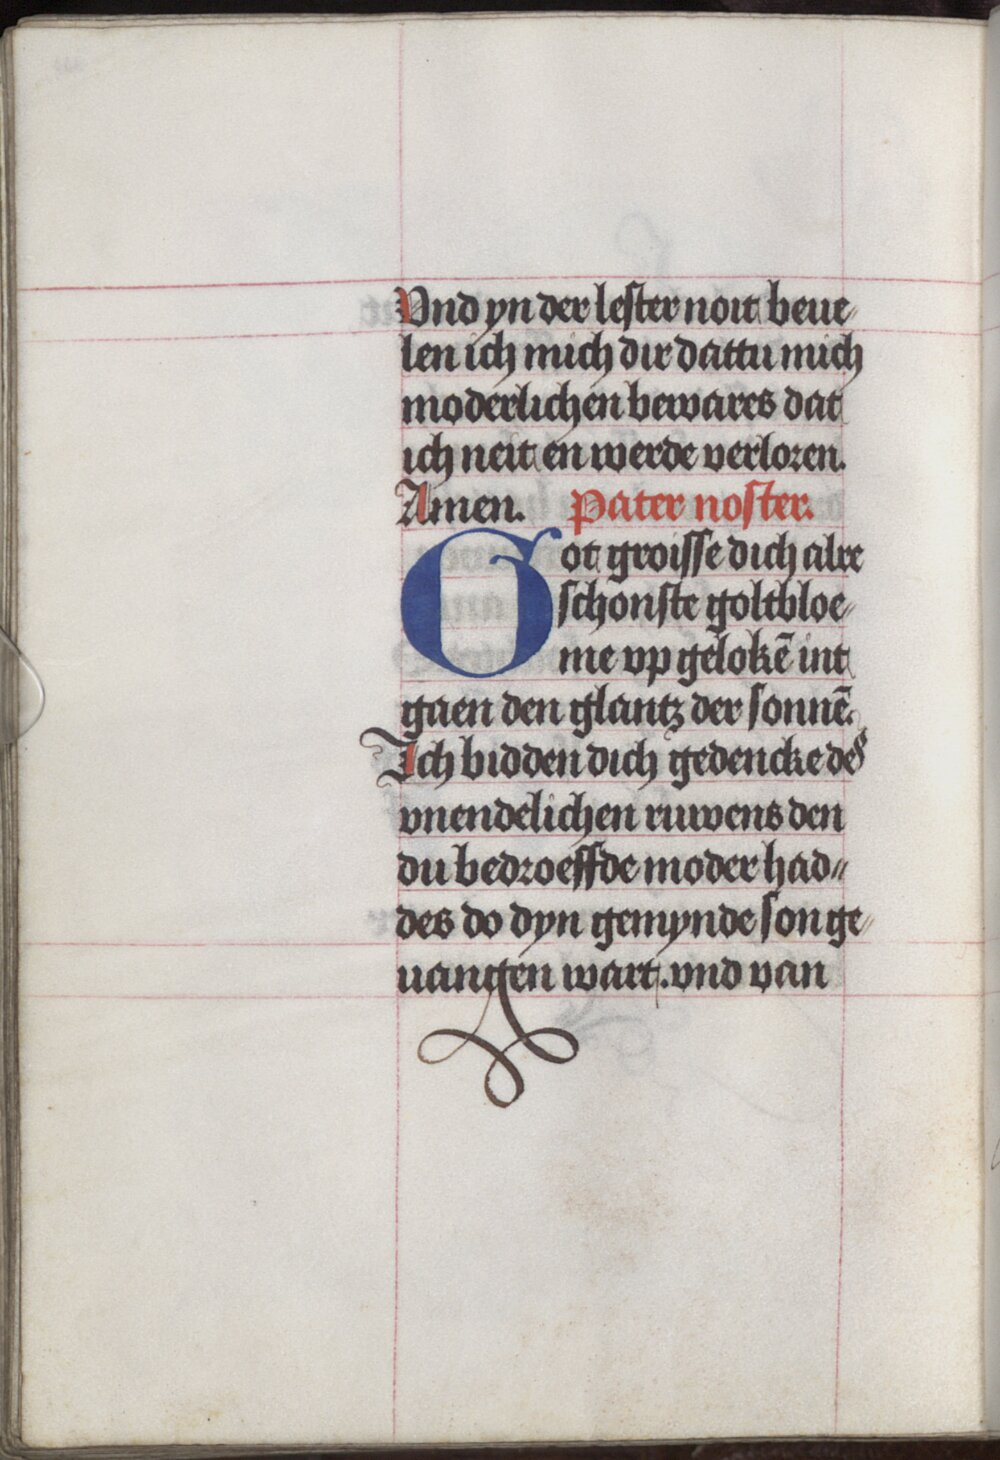 Vnd yn der lester noit beue-
len ich mich dir dattu mich
moderlichen bewares dat
ich neit en werde verloren.
Amen. Pater noster.
Got groisse dich alre
schonste goltbloe-
me vp gelokē int
gaen den glantz der sonnē.
Ich bidden dich gedencke des
vnendelichen ruwens den
du bedroeffde moder had-
des do dyn gemynde son ge-
uangen wart. vnd van